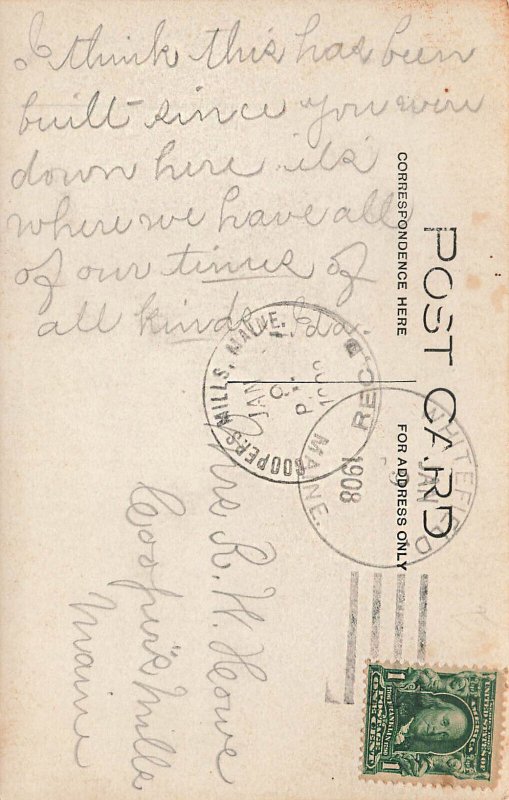 I think this has been
built since you were
down here it's
where we have all
of our times of
all kinds. Ida.
POST CARD
CORRESPONDENCE HERE
FOR ADDRESS ONLY
COOPERS MILLS, MAINE.
JAN
REC'D.
WHITEFIELD
JAN
1908
MAINE.
Mrs R. W. Howe
Cooper's Mills
Maine
UNITED STATES OF
AMERICA
FRANKLIN
POSTAGE
ONE CENT
1 1